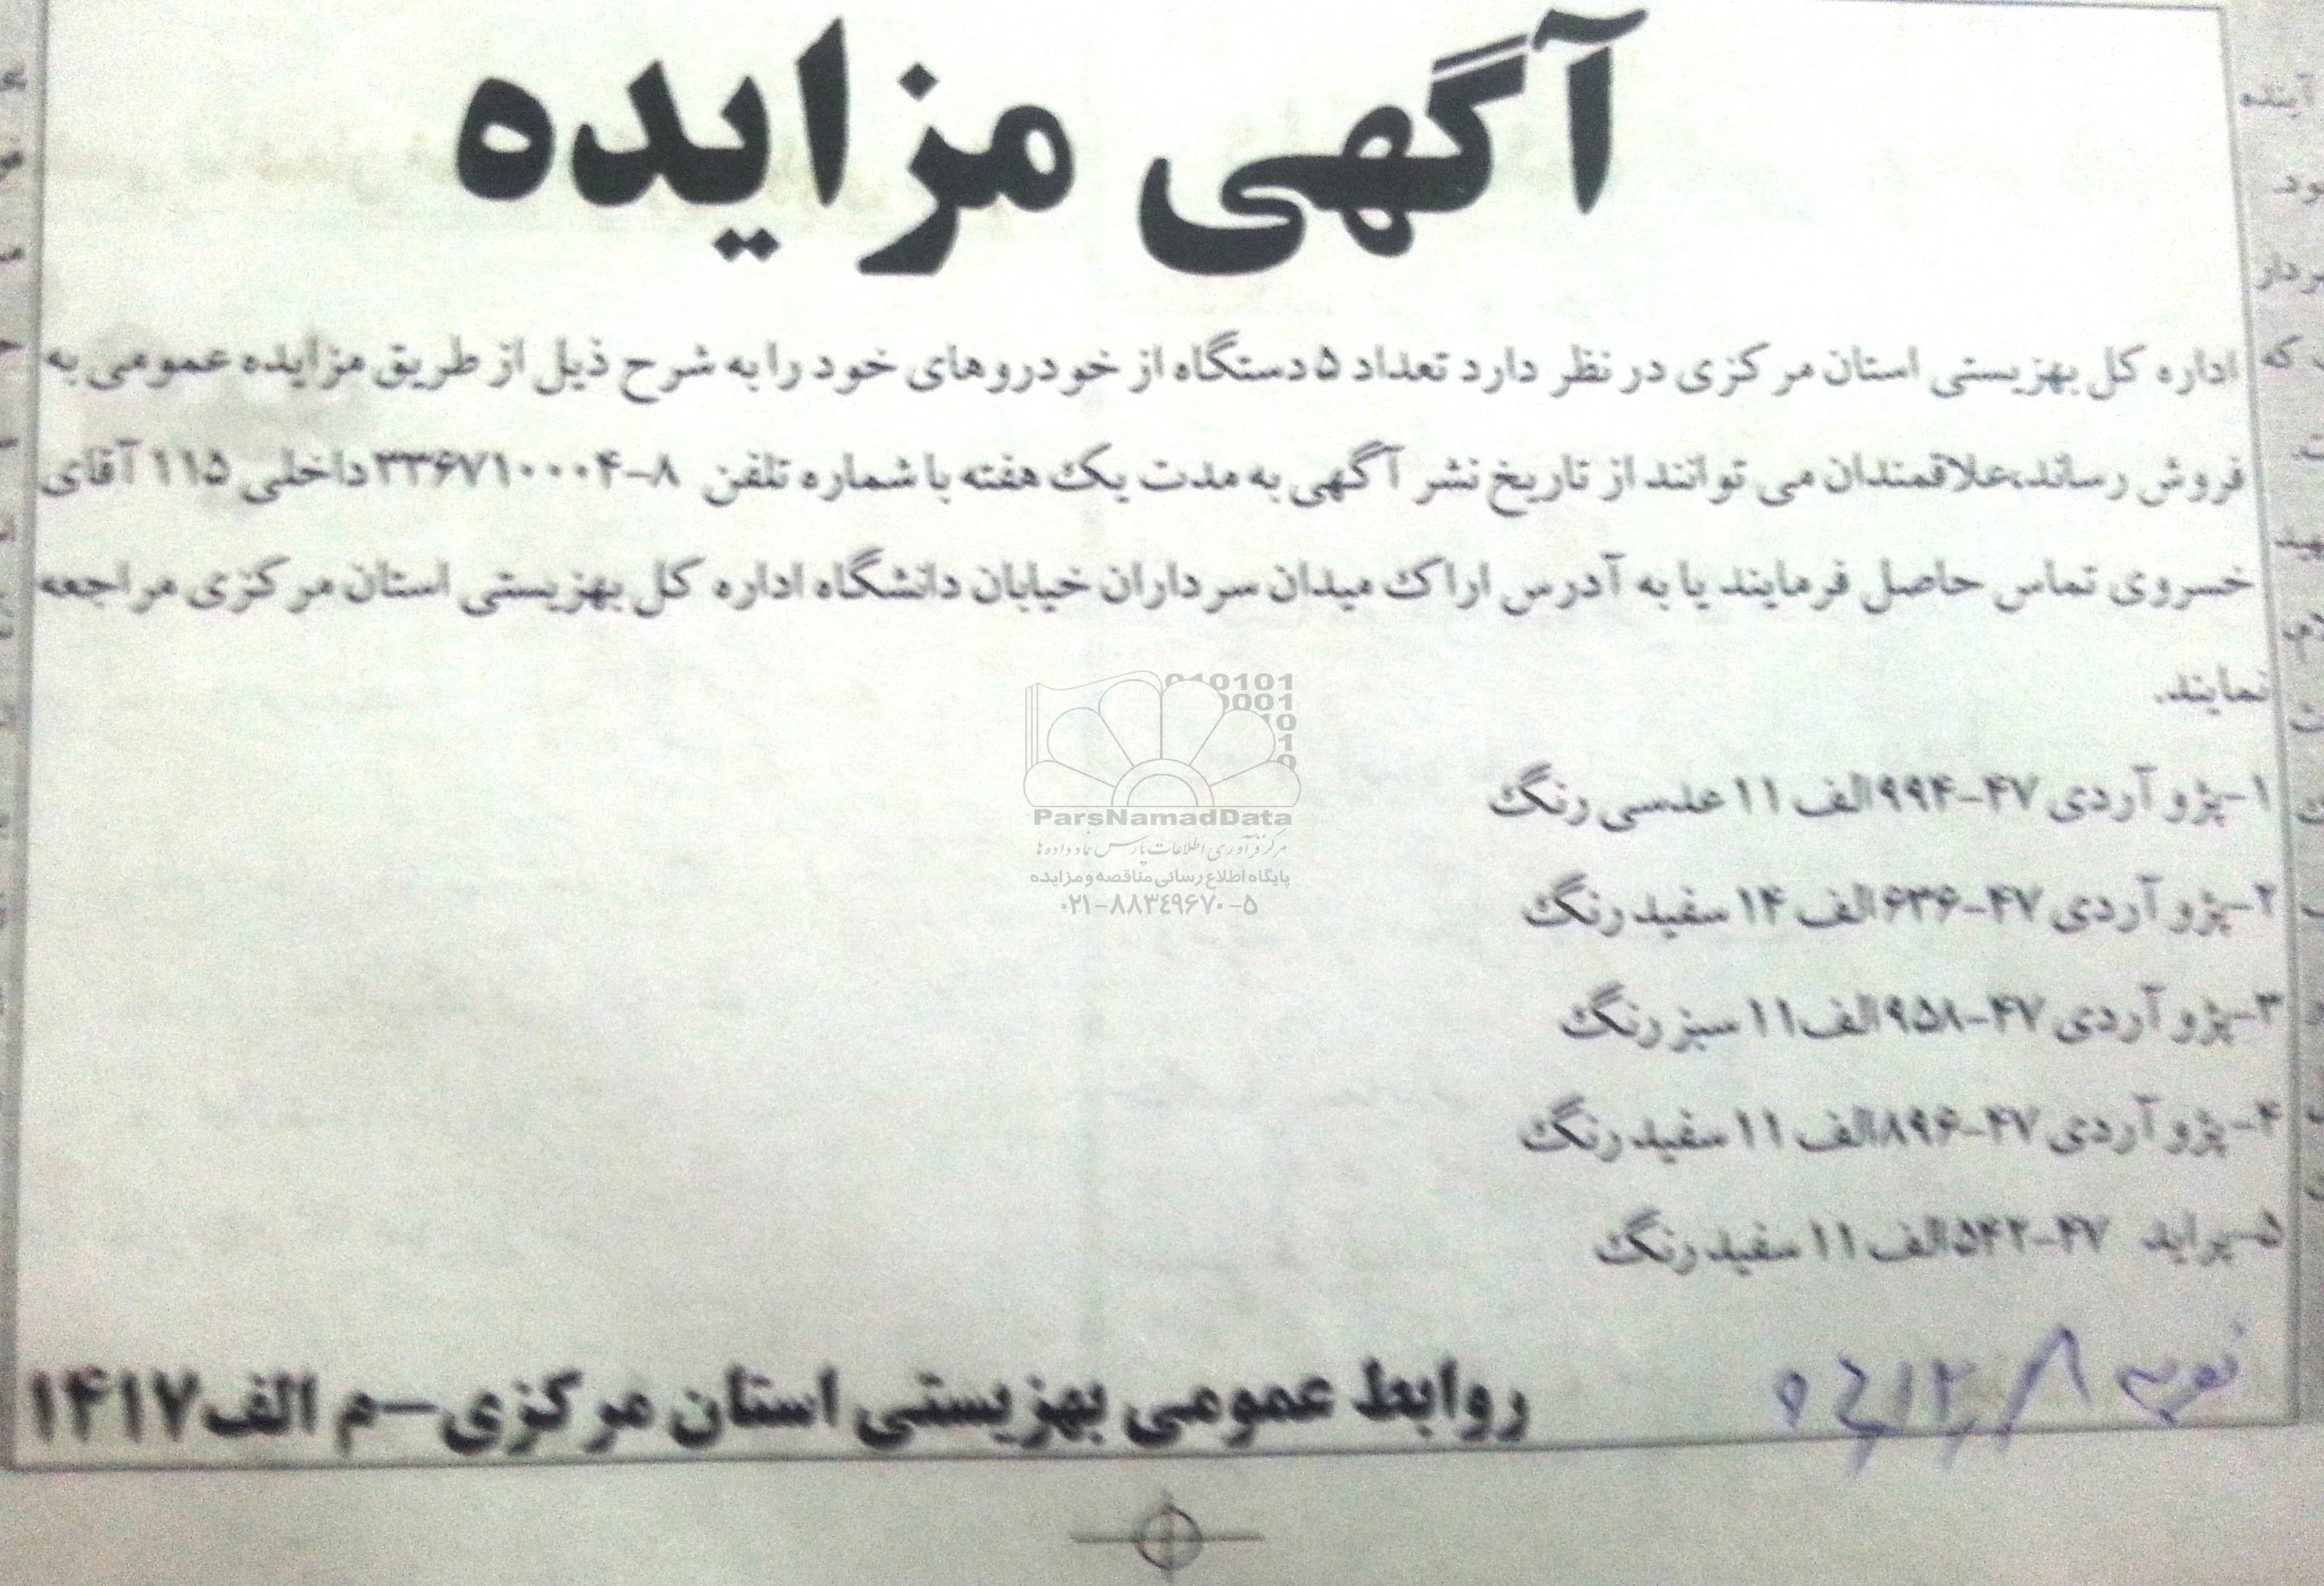 آگهی مزایده
اداره کل بهزیستی استان مرکزی در نظر دارد تعداد ۵ دستگاه از خودروهای خود را به شرح ذیل از طریق مزایده عمومی به
فروش رساند،علاقمندان می توانند از تاریخ نشر آگهی به مدت یک هفته با شماره تلفن ۸-۳۳۶۷۱۰۰۰۴ داخلی ۱۱۵ آقای
خسروی تماس حاصل فرمایند یا به آدرس اراک میدان سرداران خیابان دانشگاه اداره کل بهزیستی استان مرکزی مراجعه
نمایند.
۱-پژو آردی ۴۷-۹۹۴الف ۱۱ عدسی رنگ
۲-پژو آردی ۴۷-۶۳۶الف ۱۴ سفید رنگ
۳-پژو آردی ۴۷-۹۵۸الف۱۱ سبز رنگ
۴-پژو آردی ۴۷-۸۹۶الف ۱۱ سفید رنگ
۵-پراید ۴۷-۵۴۲الف ۱۱ سفید رنگ
روابط عمومی بهزیستی استان مرکزی-م الف۱۴۱۷
010101
0001
10
1
0
ParsNamadData
مرکز فرآوری اطلاعات پارس نماد داده ها
پایگاه اطلاع رسانی مناقصه و مزایده
۰۲۱-۸۸۳۴۹۶۷۰-۵
آینده
که